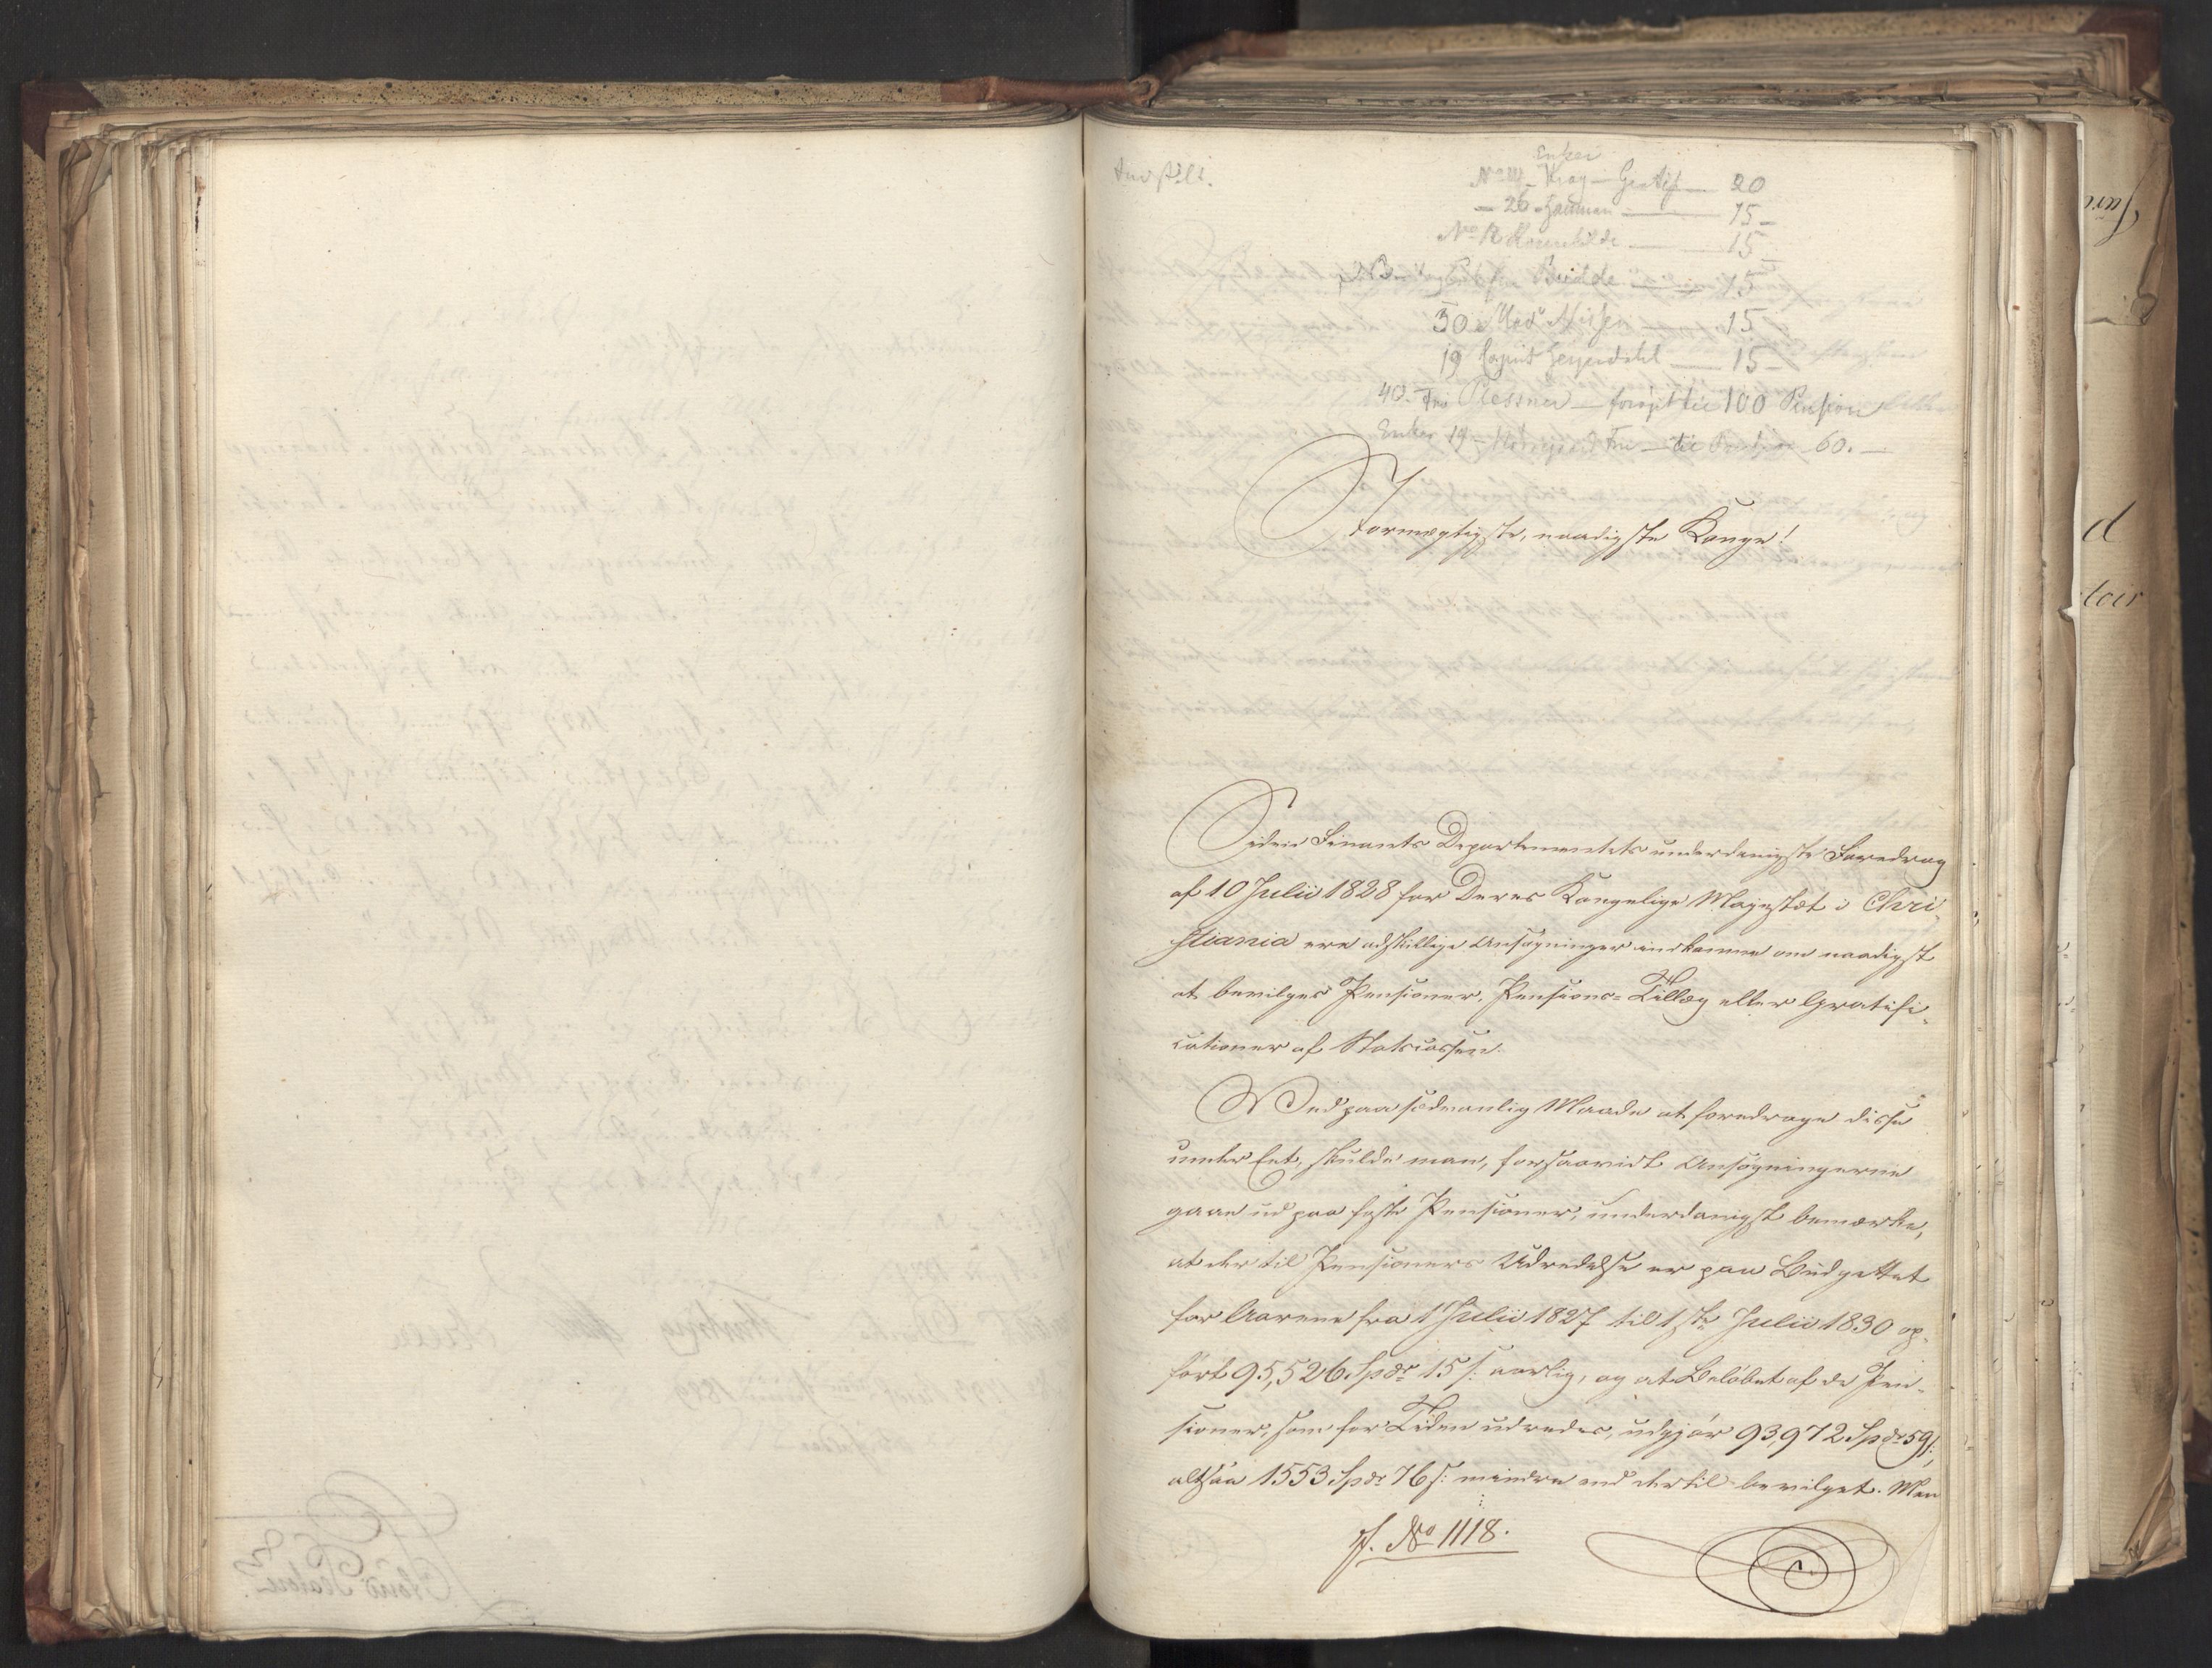 Enker
No Krog - Gratif 20
- 26 - 15 -
No 12 15
Budde 15
30 Nissen 15
19 Capit Heyerdahl 15 -
40. Fru Plessner - forøget til 100 Pension
Enker 19 - Fru - til 60. -
Stormægtigste, naadigste Konge!
Siden Finants Departementets underdanigste Foredrag
af 10 Julii 1828 for Deres Kongelige Majestæt i Chri-
stiania ere adskillige Ansøgninger indkomne om naadigst
at bevilges Pensioner, Pensions-Tillæg eller Gratifi-
cationer af Statscassen.
Ved paa sædvanlig Maade at foredrage disse
under Eet, skulde man, forsaavidt Ansøgningerne
gaae ud paa faste Pensioner, underdanigst bemærke,
at der til Pensioners Udredelse er paa Budgettet
for Aarene fra 1 Julii 1827 til 1ste Julii 1830 op-
ført 95,526 Spdr 15 s: aarlig, og at Beløbet af de Pen-
sioner, som for Tiden udredes, udgjør 93,972 Spdr 59 s:,
altsaa 1553 Spdr 76 s: mindre end dertil bevilget. Men
J. No 1118.